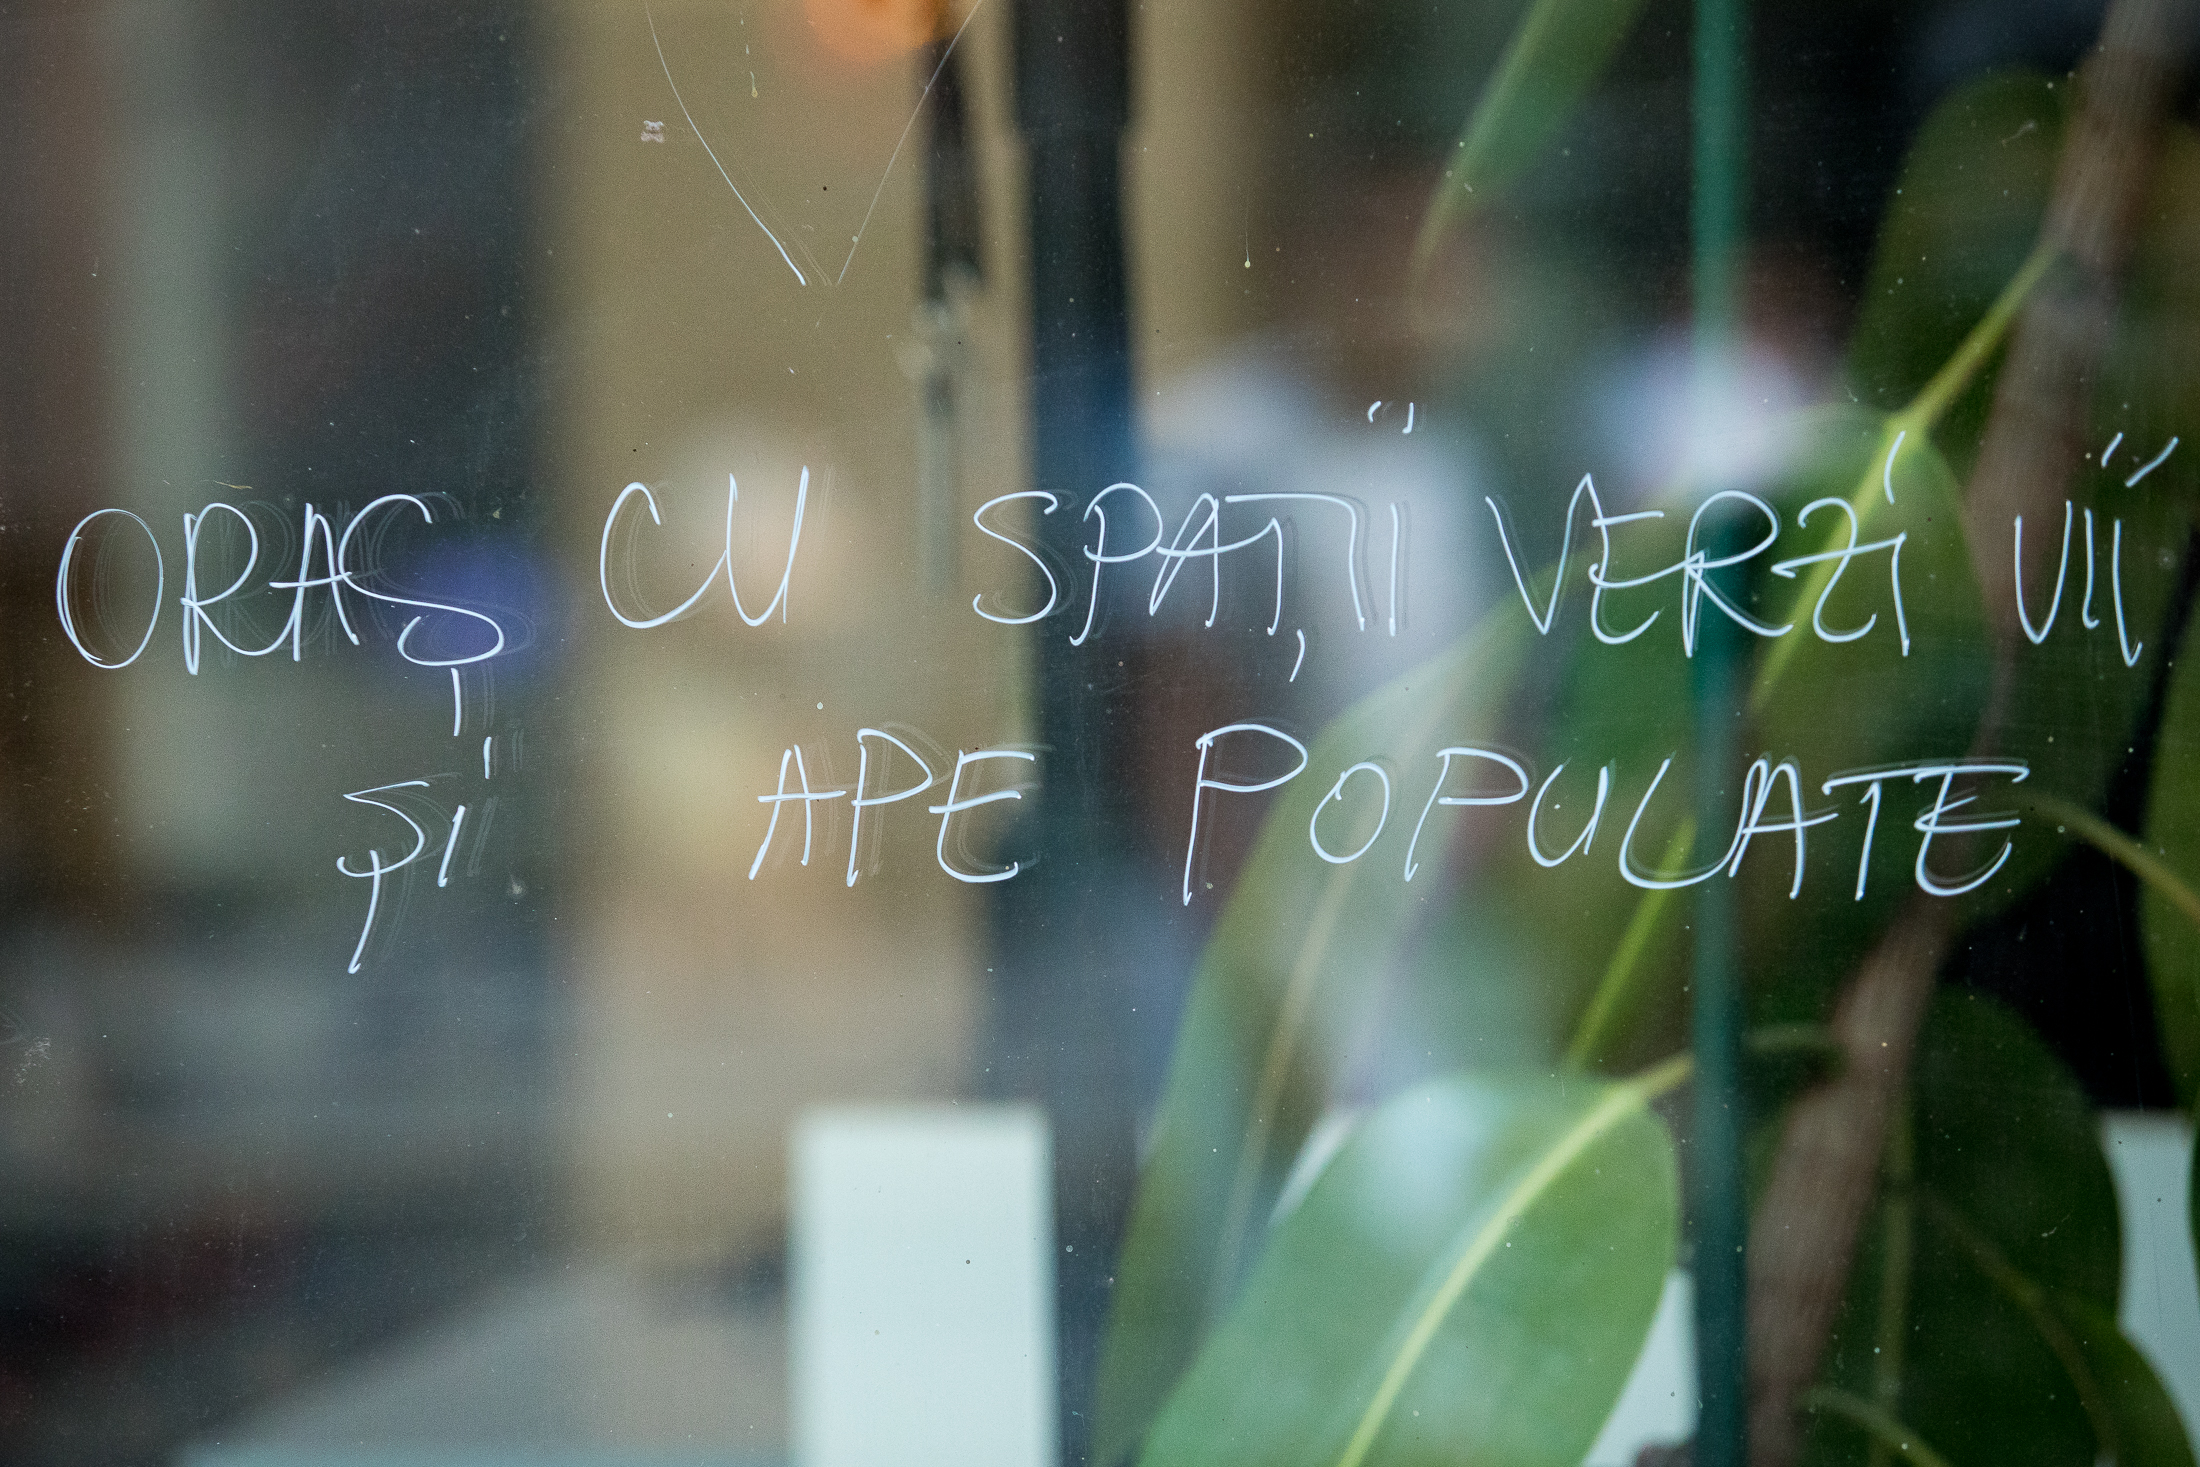 ORAȘ CU SPAȚII VERZI VII
ȘI APE POPULATE